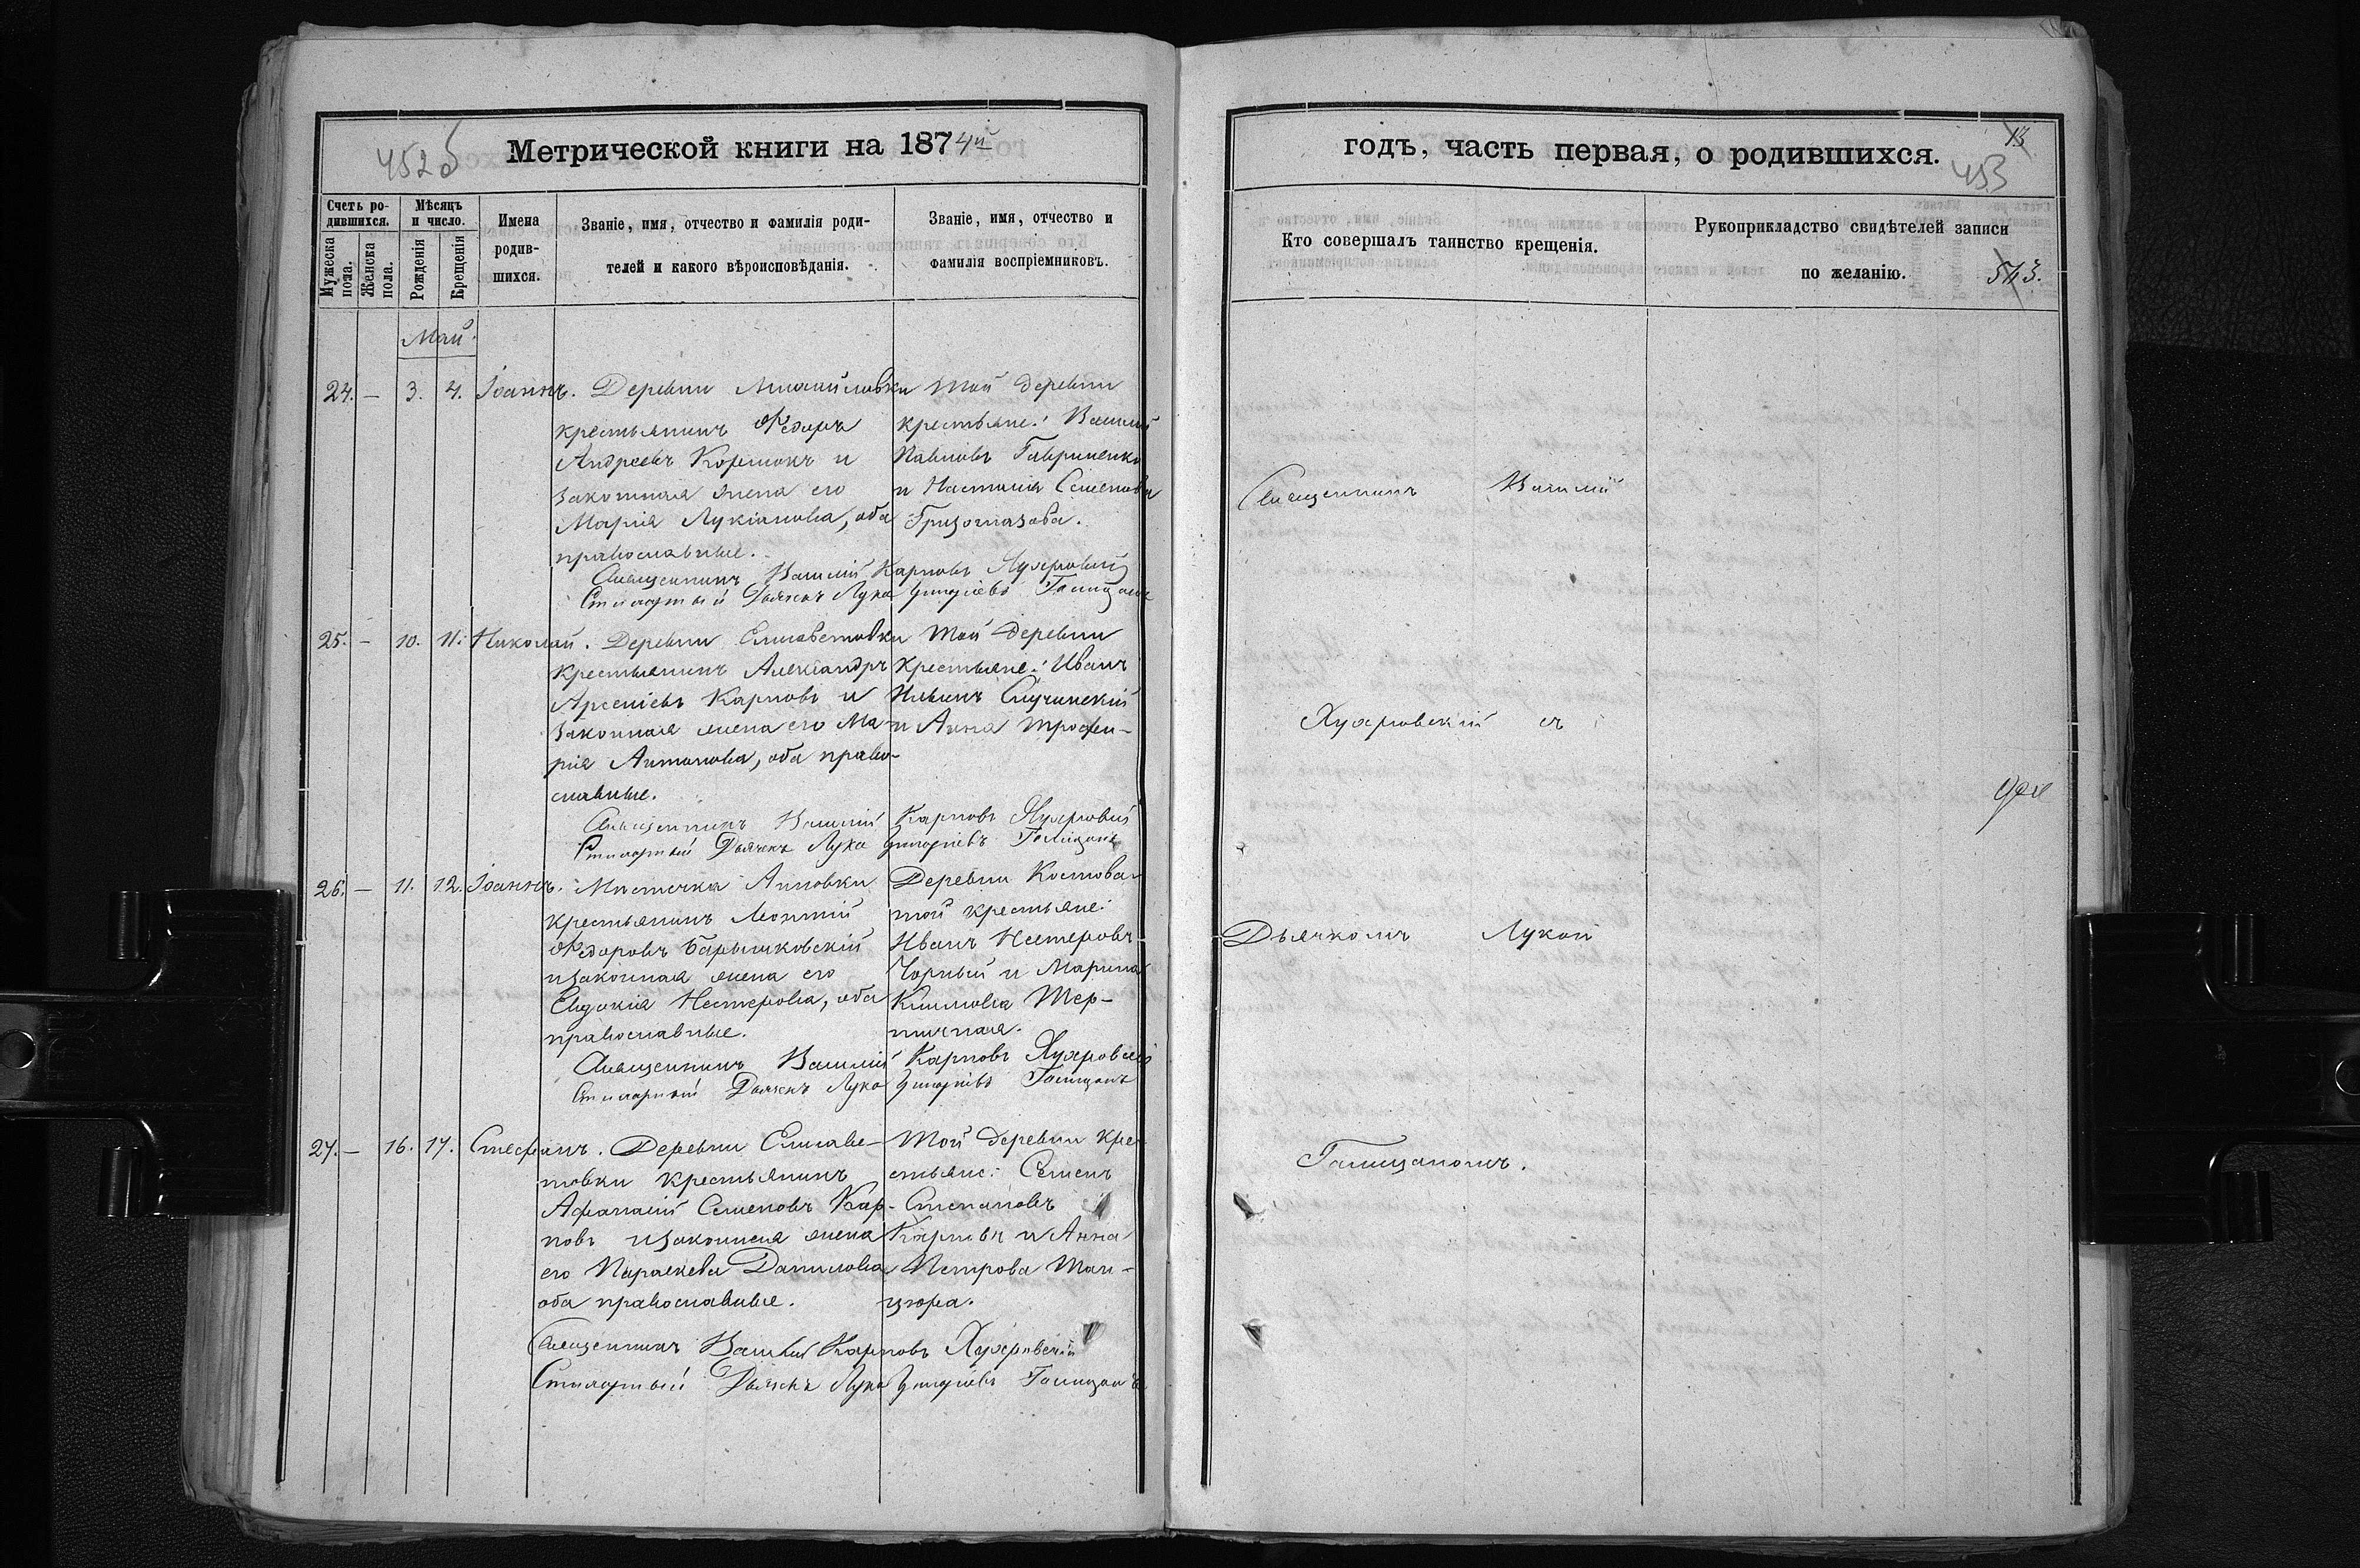 452 б
Метрической книги на 1874й
Счетъ родившихся.
Мѣсяцъ и число.
Мужеска пола.
Женска пола.
Рожденія
Крещенія
Имена родившихся.
Званіе, имя, отчество и фамилія родителей и какого вѣроисповѣданія.
Званіе, имя, отчество и фамилія воспріемниковъ.
Май.
24. — 3. 4. Іоаннъ.
Деревни Михайловки
крестьянинъ Ѳедоръ
Андреевъ и
законная жена его
Марія Лукіанова, оба
православные.
той деревни
крестьяне: Василій
Павловъ Гавриленко
и Настасія Семенова
Гризоглазова.
Священникъ Василій Карповъ
Стихарный Дьячекъ Лука
25. — 10. 11. Николай.
Деревни Елисаветовки
крестьянинъ Александръ
Арсеніевъ Карповъ и
законная жена его Ма-
рія Антонова, оба право-
славные.
той деревни
крестьяне: Иванъ
Ильинъ
и Анна Трофи-
Священникъ Василій Карповъ
Стихарный Дьячекъ Лука
26. — 11. 12. Іоаннъ.
Мѣстечка Анновки
крестьянинъ Леонтій
Ѳедоровъ Барышковскій
и законная жена его
Евдокія Нестерова, оба
православные.
Деревни Костова-
той крестьяне:
Иванъ Нестеровъ
Чорный и Марина
Климова Тер-
Священникъ Василій Карповъ
Стихарный Дьячекъ Лука
27. — 16. 17. Стефанъ.
Деревни Елисаве-
товки крестьянинъ
Афанасій Семеновъ Кар-
повъ и законная жена
его Параскева Данилова
оба православные.
той деревни кре-
стьяне: Семенъ
Степановъ
Карповъ и Анна
Петрова Ман-
цюра.
Священникъ Василій Карповъ Хухровскій
Стихарный Дьячекъ Лука
годъ, часть первая, о родившихся.
13
453
Кто совершалъ таинство крещенія.
Рукоприкладство свидѣтелей записи по желанію.
513.
Священникъ Василій
Хухровскій съ
Дьячкомъ Лукой
Галицаномъ.